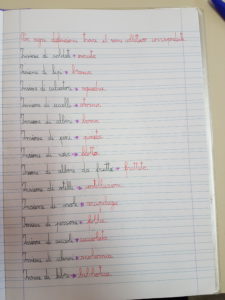 Per ogni definizione trova il nome collettivo corrispondente
Insieme di soldati →
Insieme di lupi → branco
Insieme di calciatori → squadra
Insieme di uccelli → stormo
Insieme di alberi → bosco
Insieme di pini → pineta
Insieme di navi → flotta
Insieme di alberi da frutto → frutteto
Insieme di stelle → costellazione
Insieme di isole → arcipelago
Insieme di persone → folla
Insieme di →
Insieme di →
Insieme di libri → biblioteca